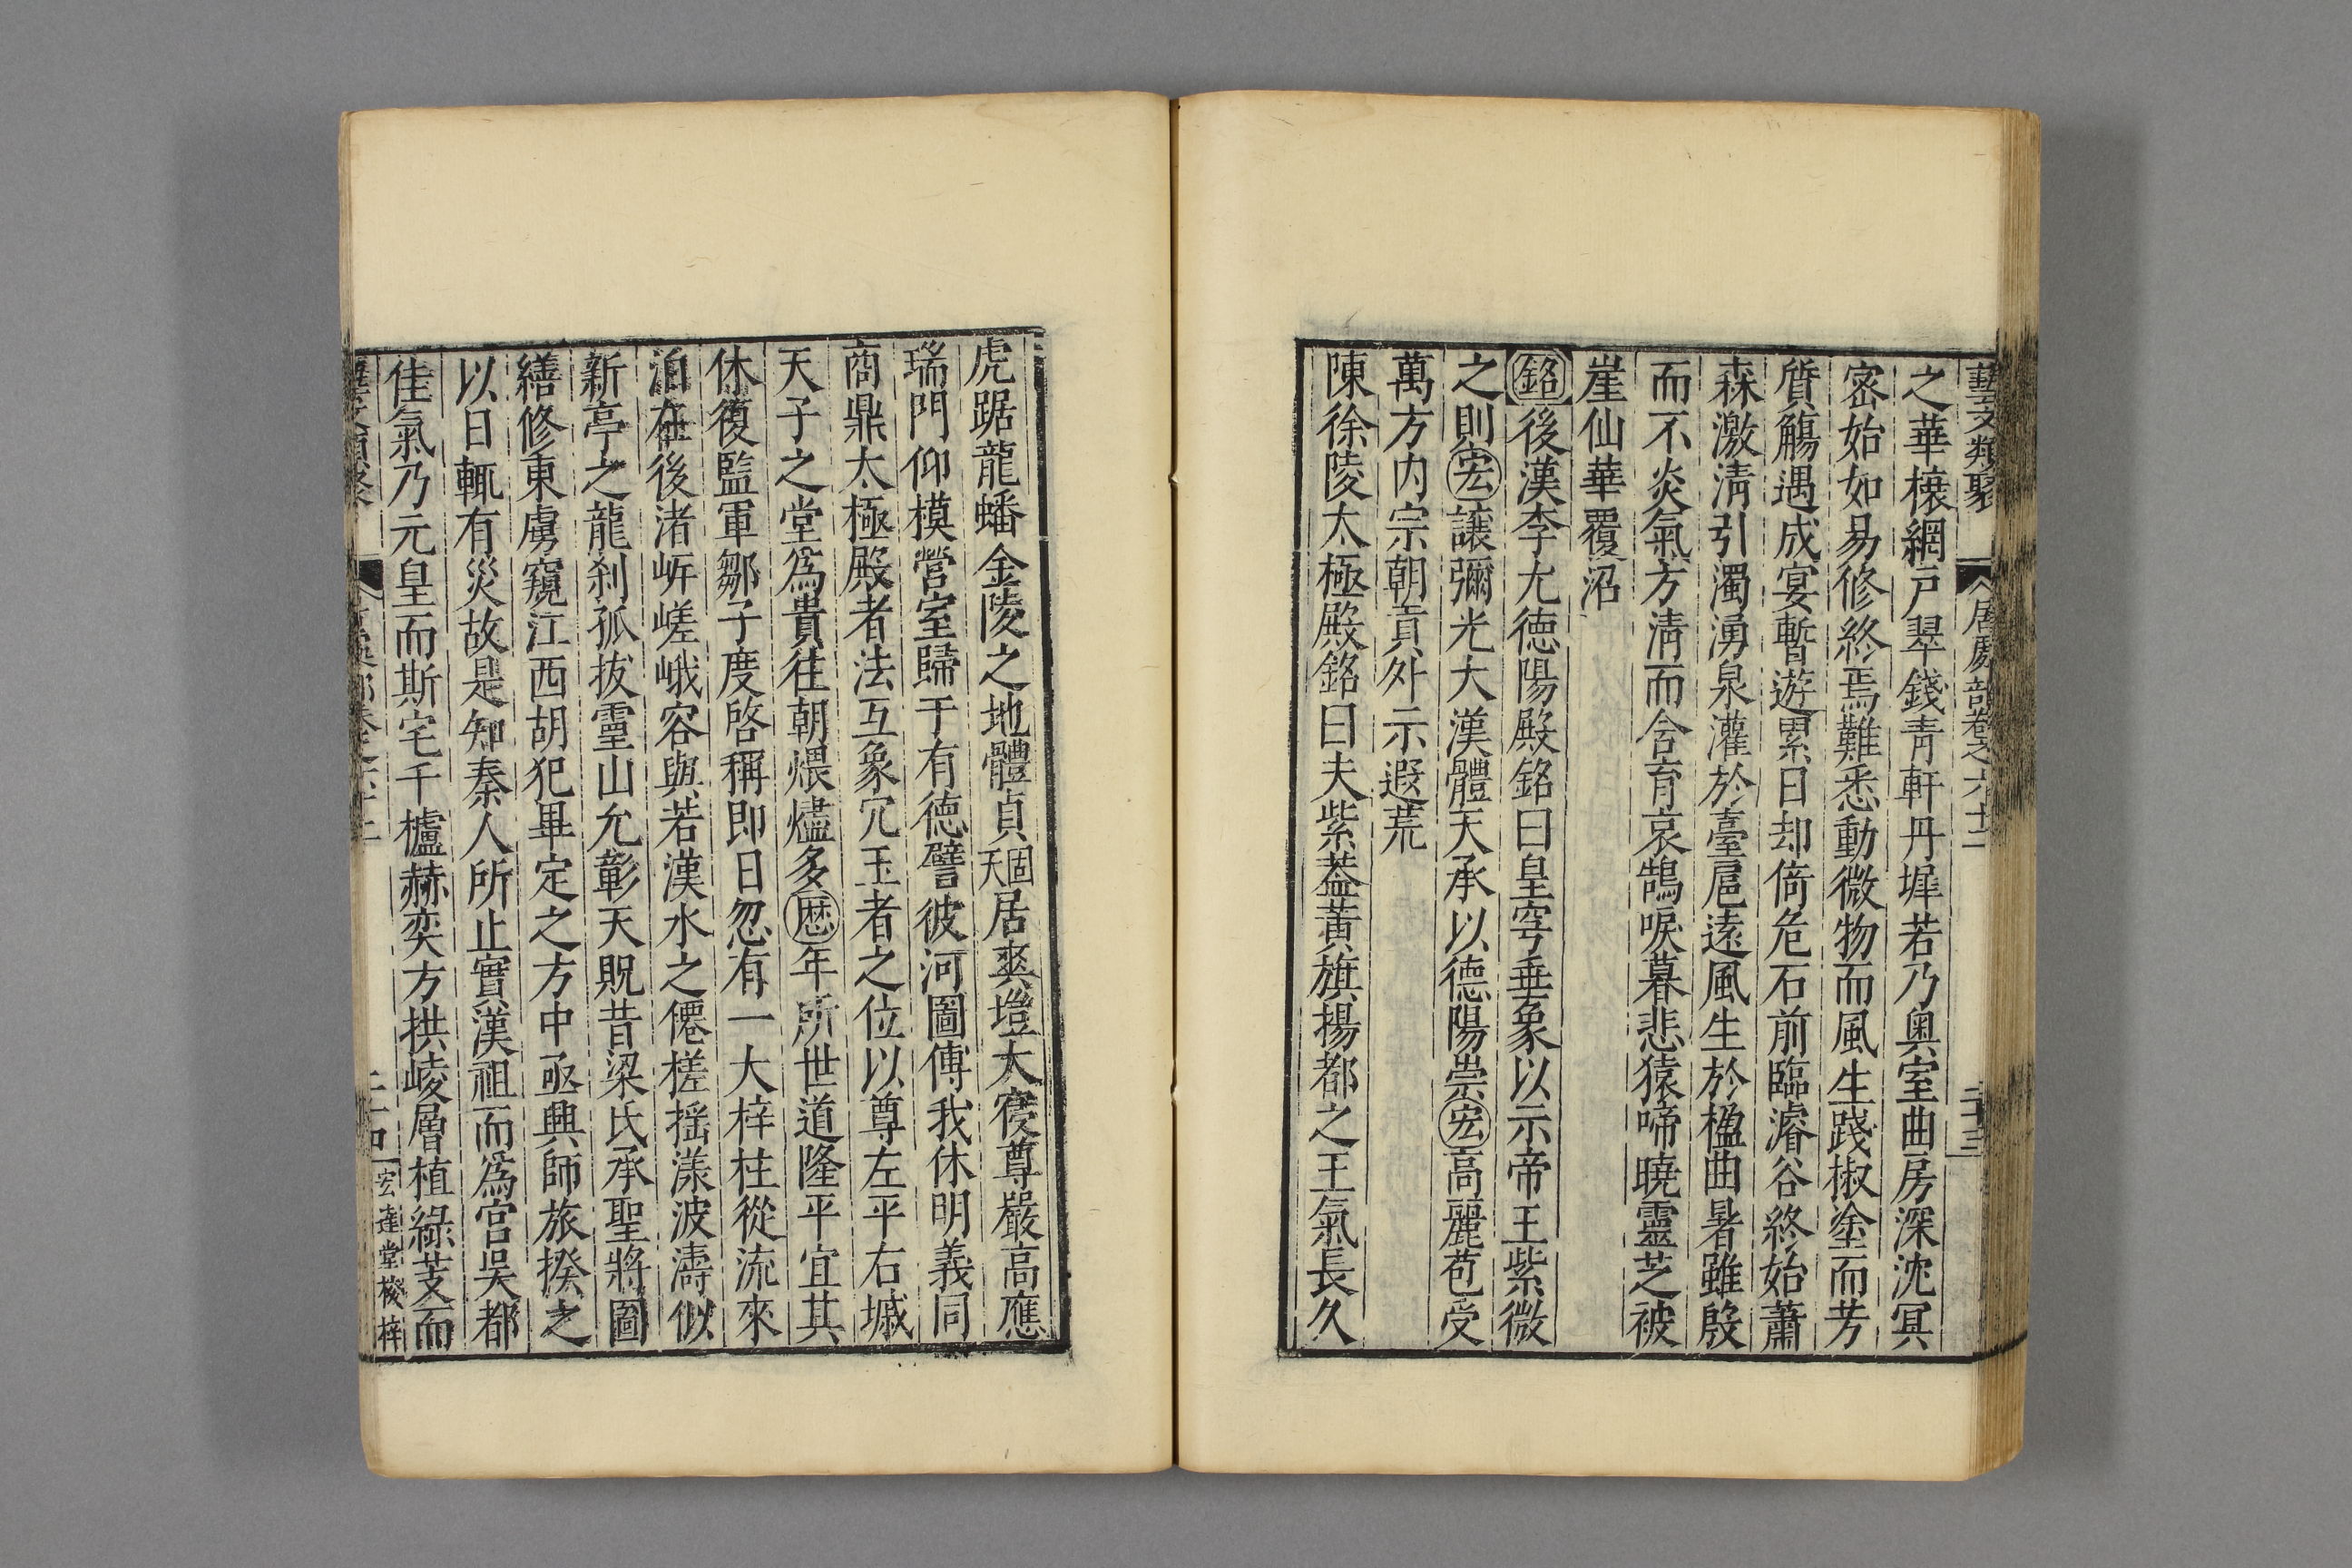 藝文類聚 居處部卷之六十二 二十三
之華榱網戸翠錢青軒丹墀若乃奥室曲房深沈冥
宻始如易修終焉難悉動微物而風生踐椒塗而芳
質觴遇成宴暫遊累日却倚危石前臨濬谷終始蕭
森激清引濁湧泉灌於臺扈遠風生於楹曲暑雖殷
而不炎氣方清而含育哀鵠唳暮悲猿啼曉靈芝被
崖仙華覆沼
銘後漢李尤徳陽殿銘曰皇穹垂象以示帝王紫微
之則宏讓彌光大漢體天承以德陽崇宏高麗苞受
萬方内宗朝貢外示遐荒
陳徐陵太極殿銘曰夫紫葢黃旗揚都之王氣長久
虎踞龍蟠金陵之地體貞固天居爽塏大寑尊嚴高應
瑞門仰模營室歸于有德譬彼河圖傳我休明義同
商鼎太極殿者法互象冗玉者之位以尊左平右墄
天子之堂爲貴往朝煨燼多歴年所世道隆平宜其
休復監軍鄒子度啓稱即日忽有一大梓柱從流來
泊在後渚岓嵯峨容與若漢水之僊槎揺漾波濤似
新亭之龍刹孤拔霊山允彰天貺昔梁氏承聖將圖
繕修東虜窺江西胡犯畢定之方中亟興師旅揆之
以日輒有災故是知秦人所止實漢祖而爲宫吳都
佳氣乃元皇而斯宅千櫨赫奕方拱崚層植綠芰而
二十四 宏達堂棱梓